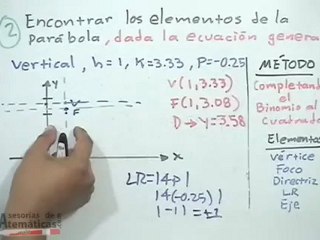 2 Encontrar los elementos de la
parábola, dada la ecuación genera
Vertical, h=1, K=3.33, P=-0.25
MÉTODO
V(1,3.33)
F(1,3.08)
D→Y=3.58
Completando
el
Binomio al
Cuadrado
Y
V
F
X
LR=|4p|
|4(-0.25)|
|-1|=+1
Elementos
Vértice
Foco
Directriz
LR
Eje
sesorías de
temáticas